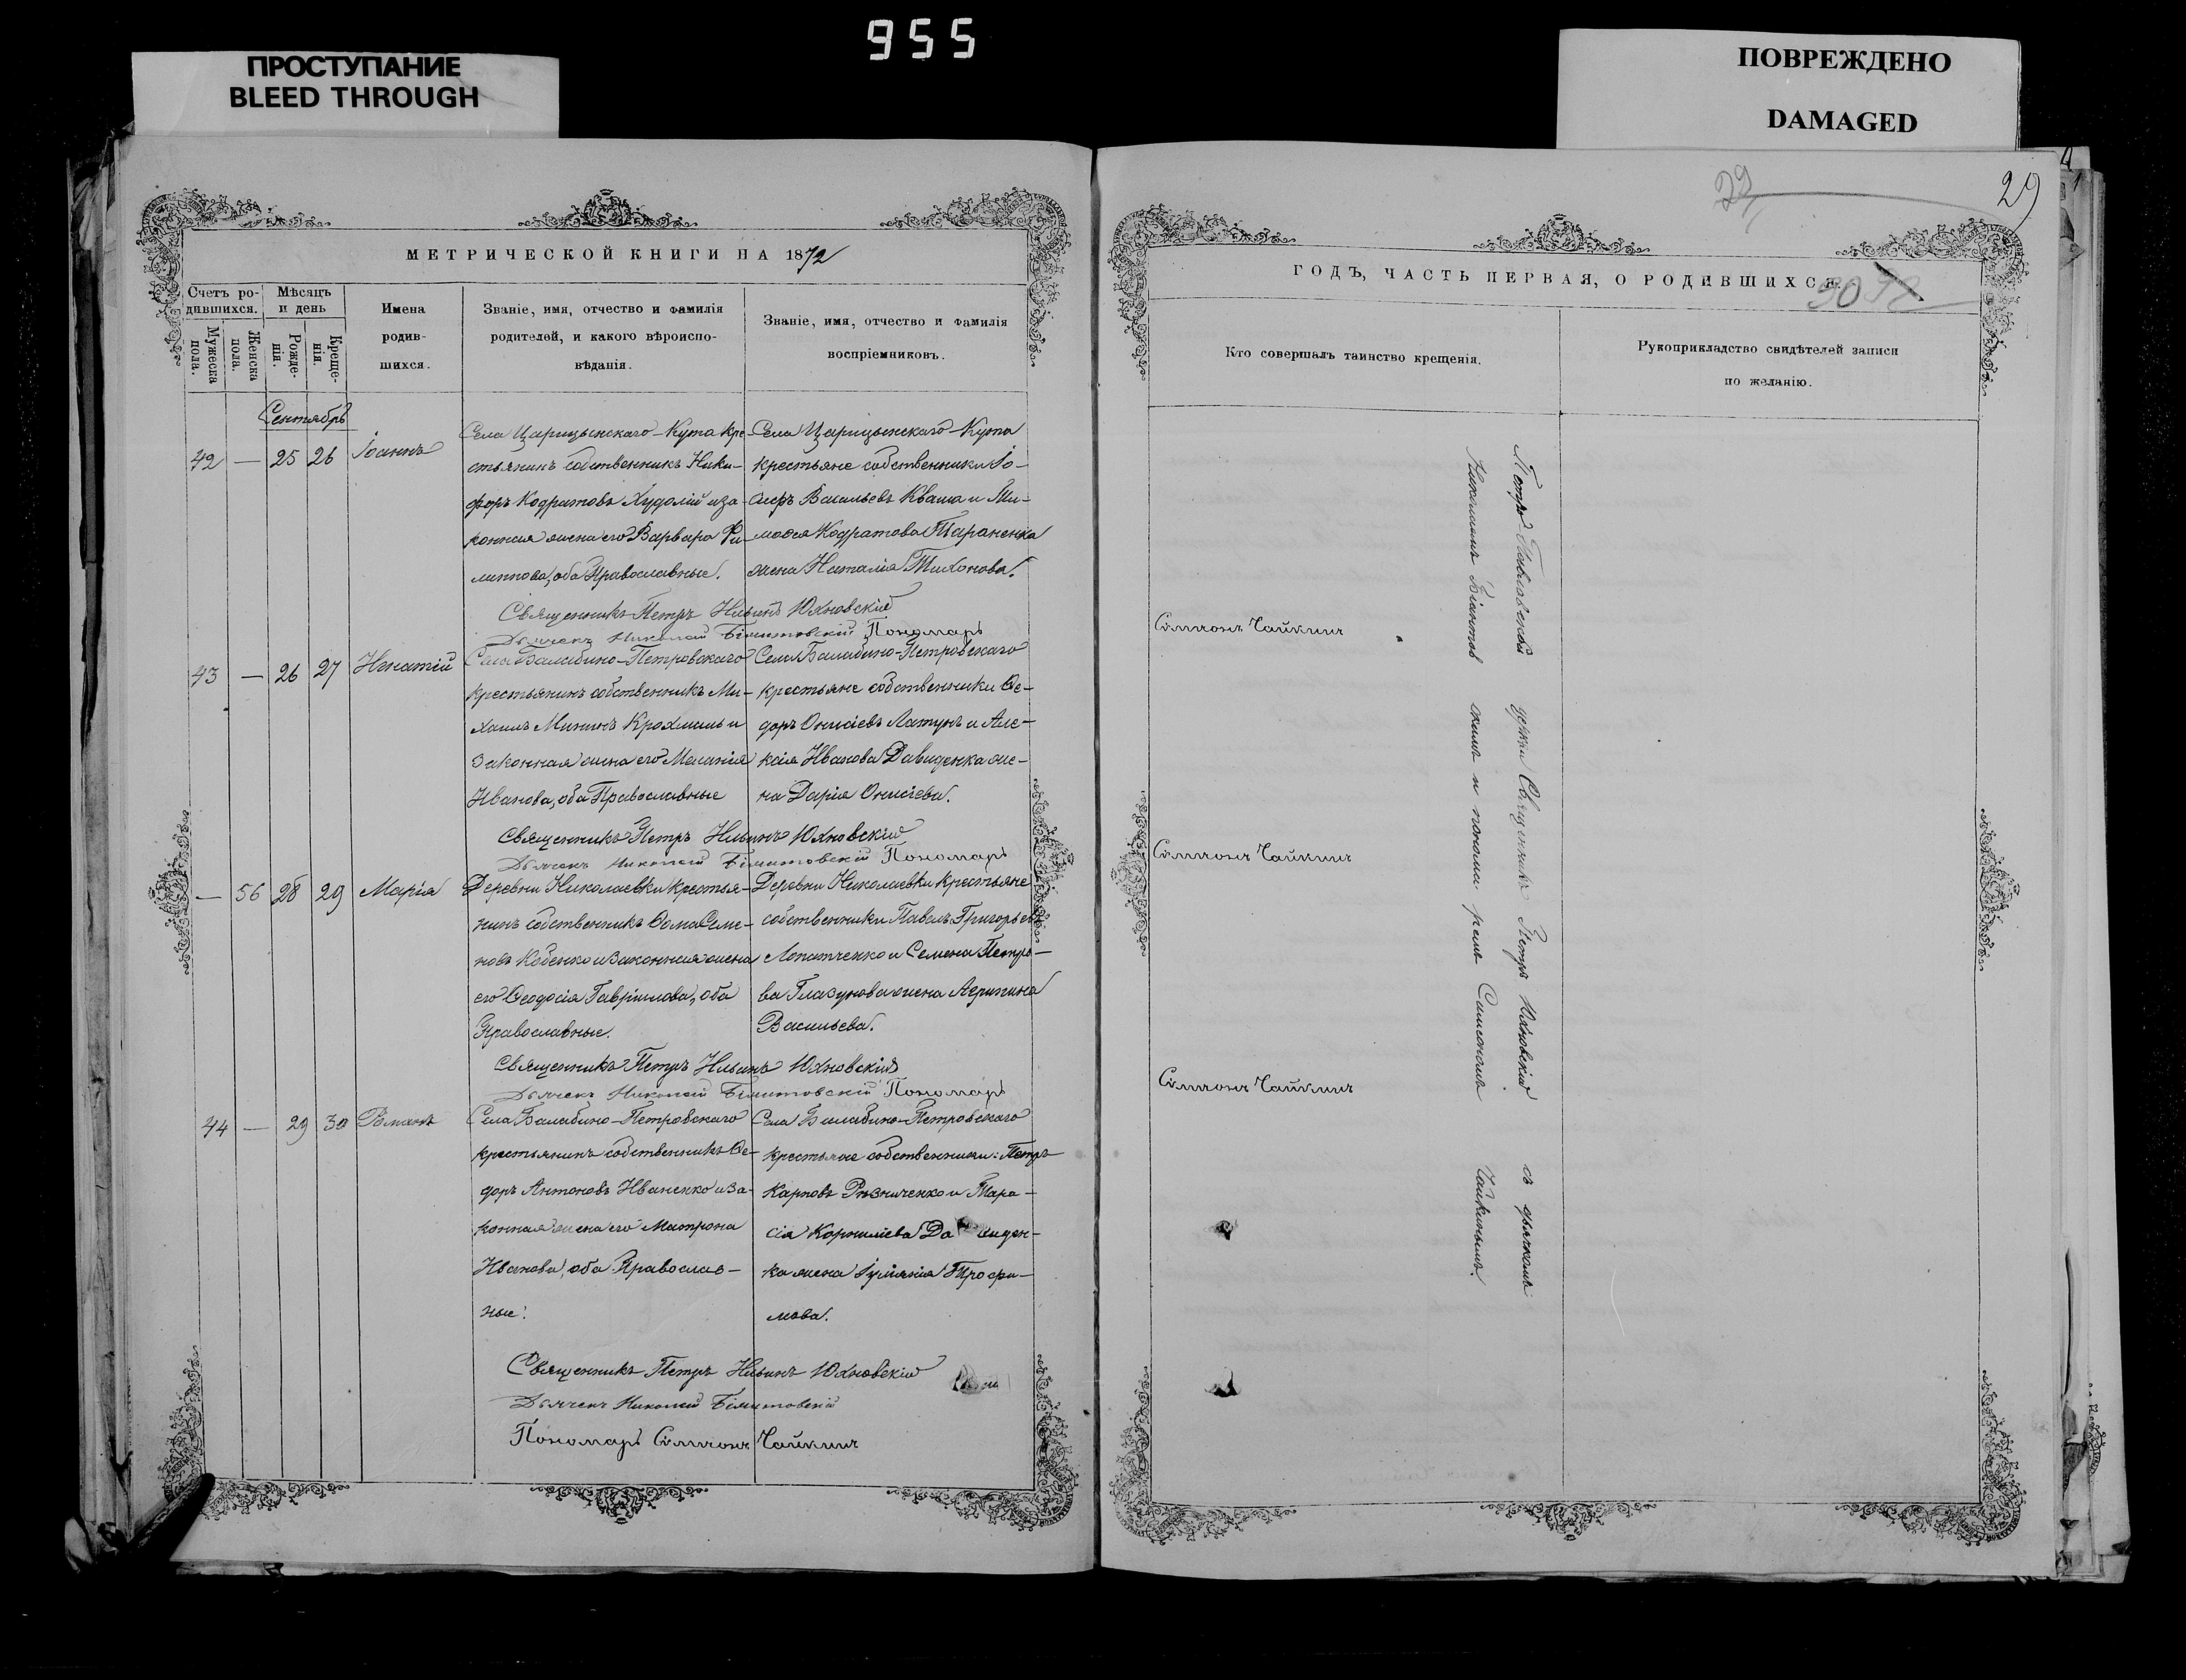 955
ПРОСТУПАНИЕ
BLEED THROUGH
ПОВРЕЖДЕНО
DAMAGED
МЕТРИЧЕСКОЙ КНИГИ НА 1872
Счетъ родившихся.
Мужеска пола.
Женска пола.
Мѣсяцъ и день
Рожденія.
Крещенія.
Имена
родив-
шихся.
Званіе, имя, отчество и фамилія
родителей, и какого вѣроиспо-
вѣданія.
Званіе, имя, отчество и фамилія
воспріемниковъ.
Сентябрь
42 — 25 26 Іоаннъ
Села Царицынскаго-Кута кре-
стьянинъ собственникъ Ники-
форъ Кодратовъ Худолій и за-
конная жена его Варвара Фи-
липпова, оба Православные.
Села Царицынскаго-Кута
крестьяне собственники Іо-
сифъ Васильевъ Кваша и Ти-
мофея Кодратова Тараненка
жена Наталія Тихонова.
Священникъ Петръ Ильинъ Юхновскій
Дьячекъ Николай Пономарь
43 — 26 27 Игнатій
Села Балабино-Петровскаго
крестьянинъ собственникъ Ми-
хаилъ Мининъ Крохмаль и
законная жена его Меланія
Иванова, оба Православные
Села Балабино-Петровскаго
крестьяне собственники Ѳе-
доръ Онисіевъ Латунъ и Але-
ксія Иванова Давиденка же-
на Дарія Онисіева.
Священникъ Петръ Ильинъ Юхновскій
Дьячекъ Николай Пономарь
— 56 28 29 Марія
Деревни Николаевки крестья-
нинъ собственникъ Ѳома Семе-
новъ Кобенко и законная жена
его Ѳеодосія Гавріилова, оба
Православные.
Деревни Николаевки крестьяне
собственники Павелъ Григорьевъ
Лопатченко и Семена Петро-
ва Глазунова жена Агрипина
Васильева.
Священникъ Петръ Ильинъ Юхновскій
Дьячекъ Николай Пономарь
44 — 29 30 Романъ
Села Балабино-Петровскаго
крестьянинъ собственникъ Ѳе-
доръ Антоновъ Иваненко и за-
конная жена его Матрона
Иванова, оба Православ-
ные.
Села Балабино-Петровскаго
крестьяне собственники: Петръ
Карповъ Рѣзниченко и Тара-
сія Корниліева Давиден-
ка жена Іуліанія Трофи-
мова.
Священникъ Петръ Ильинъ Юхновскій
Дьячекъ Николай
Пономарь Симеонъ Чайкинъ
29
29
90
ГОДЪ, ЧАСТЬ ПЕРВАЯ, О РОДИВШИХСЯ.
Кто совершалъ таинство крещенія.
Рукоприкладство свидѣтелей записи
по желанію.
Симеонъ Чайкинъ
Симеонъ Чайкинъ
Симеонъ Чайкинъ
Петро-Павловской церкви Священникъ Петръ Юхновскій съ дьячкомъ
и пономаремъ Симеономъ Чайкинымъ.